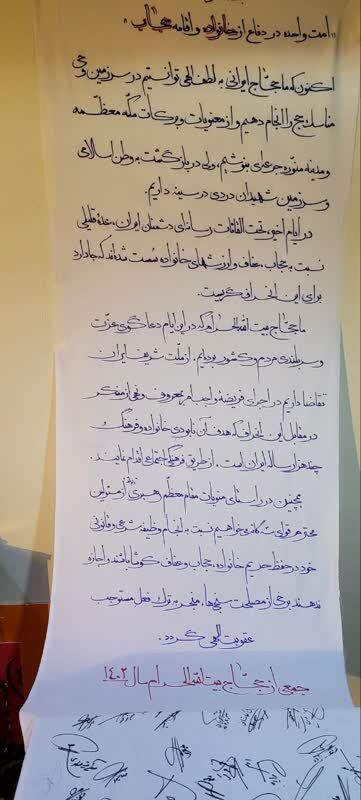 «امت واحده در دفاع از خانواده و اقامه حجاب»
اکنون که ما حجاج ایرانی به لطف الهی توانستیم در سرزمین وحی
مناسک حج را انجام دهیم و از معنویات و برکات مکّه معظّمه
و مدینه منوّره جرعه‌ای بنوشیم، ولی در بازگشت به وطن اسلامی
و سرزمین شهیدان دردی در سینه داریم.
در ایام اخیر، تحت القائات رسانه‌ای دشمنان ایران، عدّه قلیلی
نسبت به حجاب، عفاف و ارزشهای خانواده سُست شده‌اند که جا دارد
برای این انحراف گریست.
ما حجّاج بیت الله الحرام که در این ایام دعاگوی عزّت
و سربلندی مردم و کشور بودیم، از ملّت شریف ایران
تقاضا داریم در اجرای فریضهٔ واجب امر بمعروف و نهی از منکر
در مقابل این انحراف که هدف آن نابودی خانواده و فرهنگ
چند هزار ساله ایران است. از طریق فرهنگی اجتماعی اقدام نمایند.
همچنین در راستای منویات مقام معظّم رهبری از مسئولین
محترم قوای سه گانه می‌خواهیم نسبت به انجام وظیفه شرعی و قانونی
خود در حفظ حریم خانواده، حجاب و عفاف کوشا باشند و اجازه
ندهند برخی از مصلحت سنجی‌ها، منجر به ترک فعل مستوجب
عقوبت الهی گردد.
جمعی از حجّاج بیت الله الحرام سال ۱۴۰۲